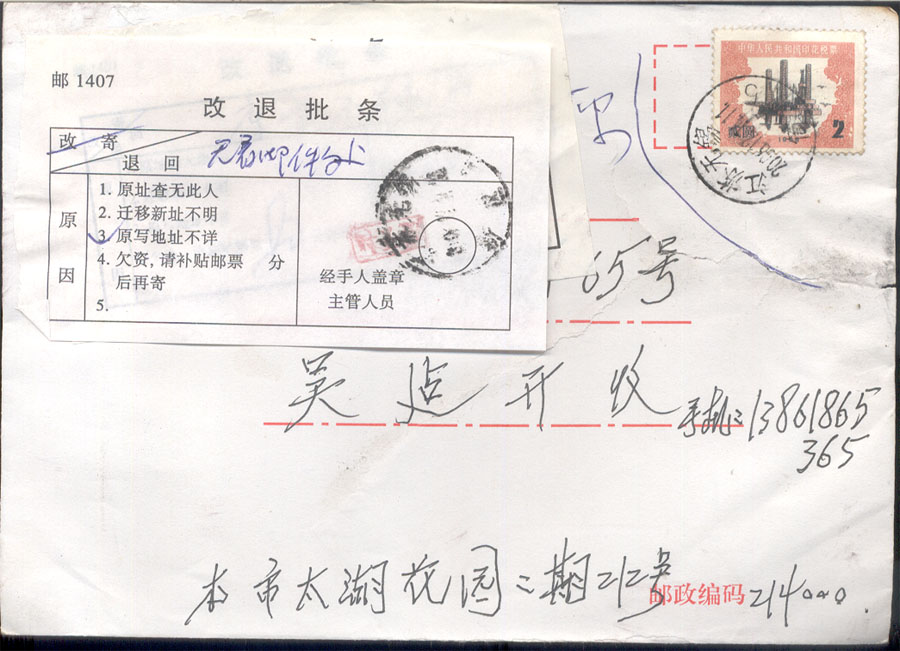 邮 1407
改退批条
改 寄
退 回
原因
1. 原址查无此人
2. 迁移新址不明
3. 原写地址不详
4. 欠资,请补贴邮票 分
后再寄
5.
经手人盖章
主管人员
中华人民共和国印花税票
2
江苏无锡
65号
吴 开收
手机:13861865
365
本市太湖花园二期212号
邮政编码 214000.